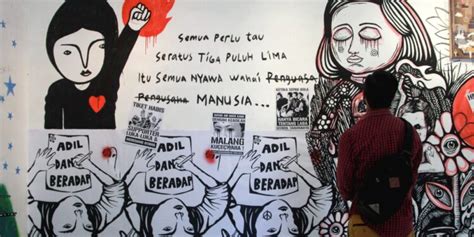 SEMUA PERLU TAU
SERATUS TIGA PULUH LIMA
ITU SEMUA NYAWA WAHAI PENGUASA
PENGUSAHA MANUSIA...
TIKET HABIS
SUPPORTER
LUKA LUKA
MALANG
KUCECWARA
HANYA BICARA
TENTANG LABA
ADIL
DAN
BERADAP
ADIL
DAN
BERADAP
ADIL
DAN
BERADAP